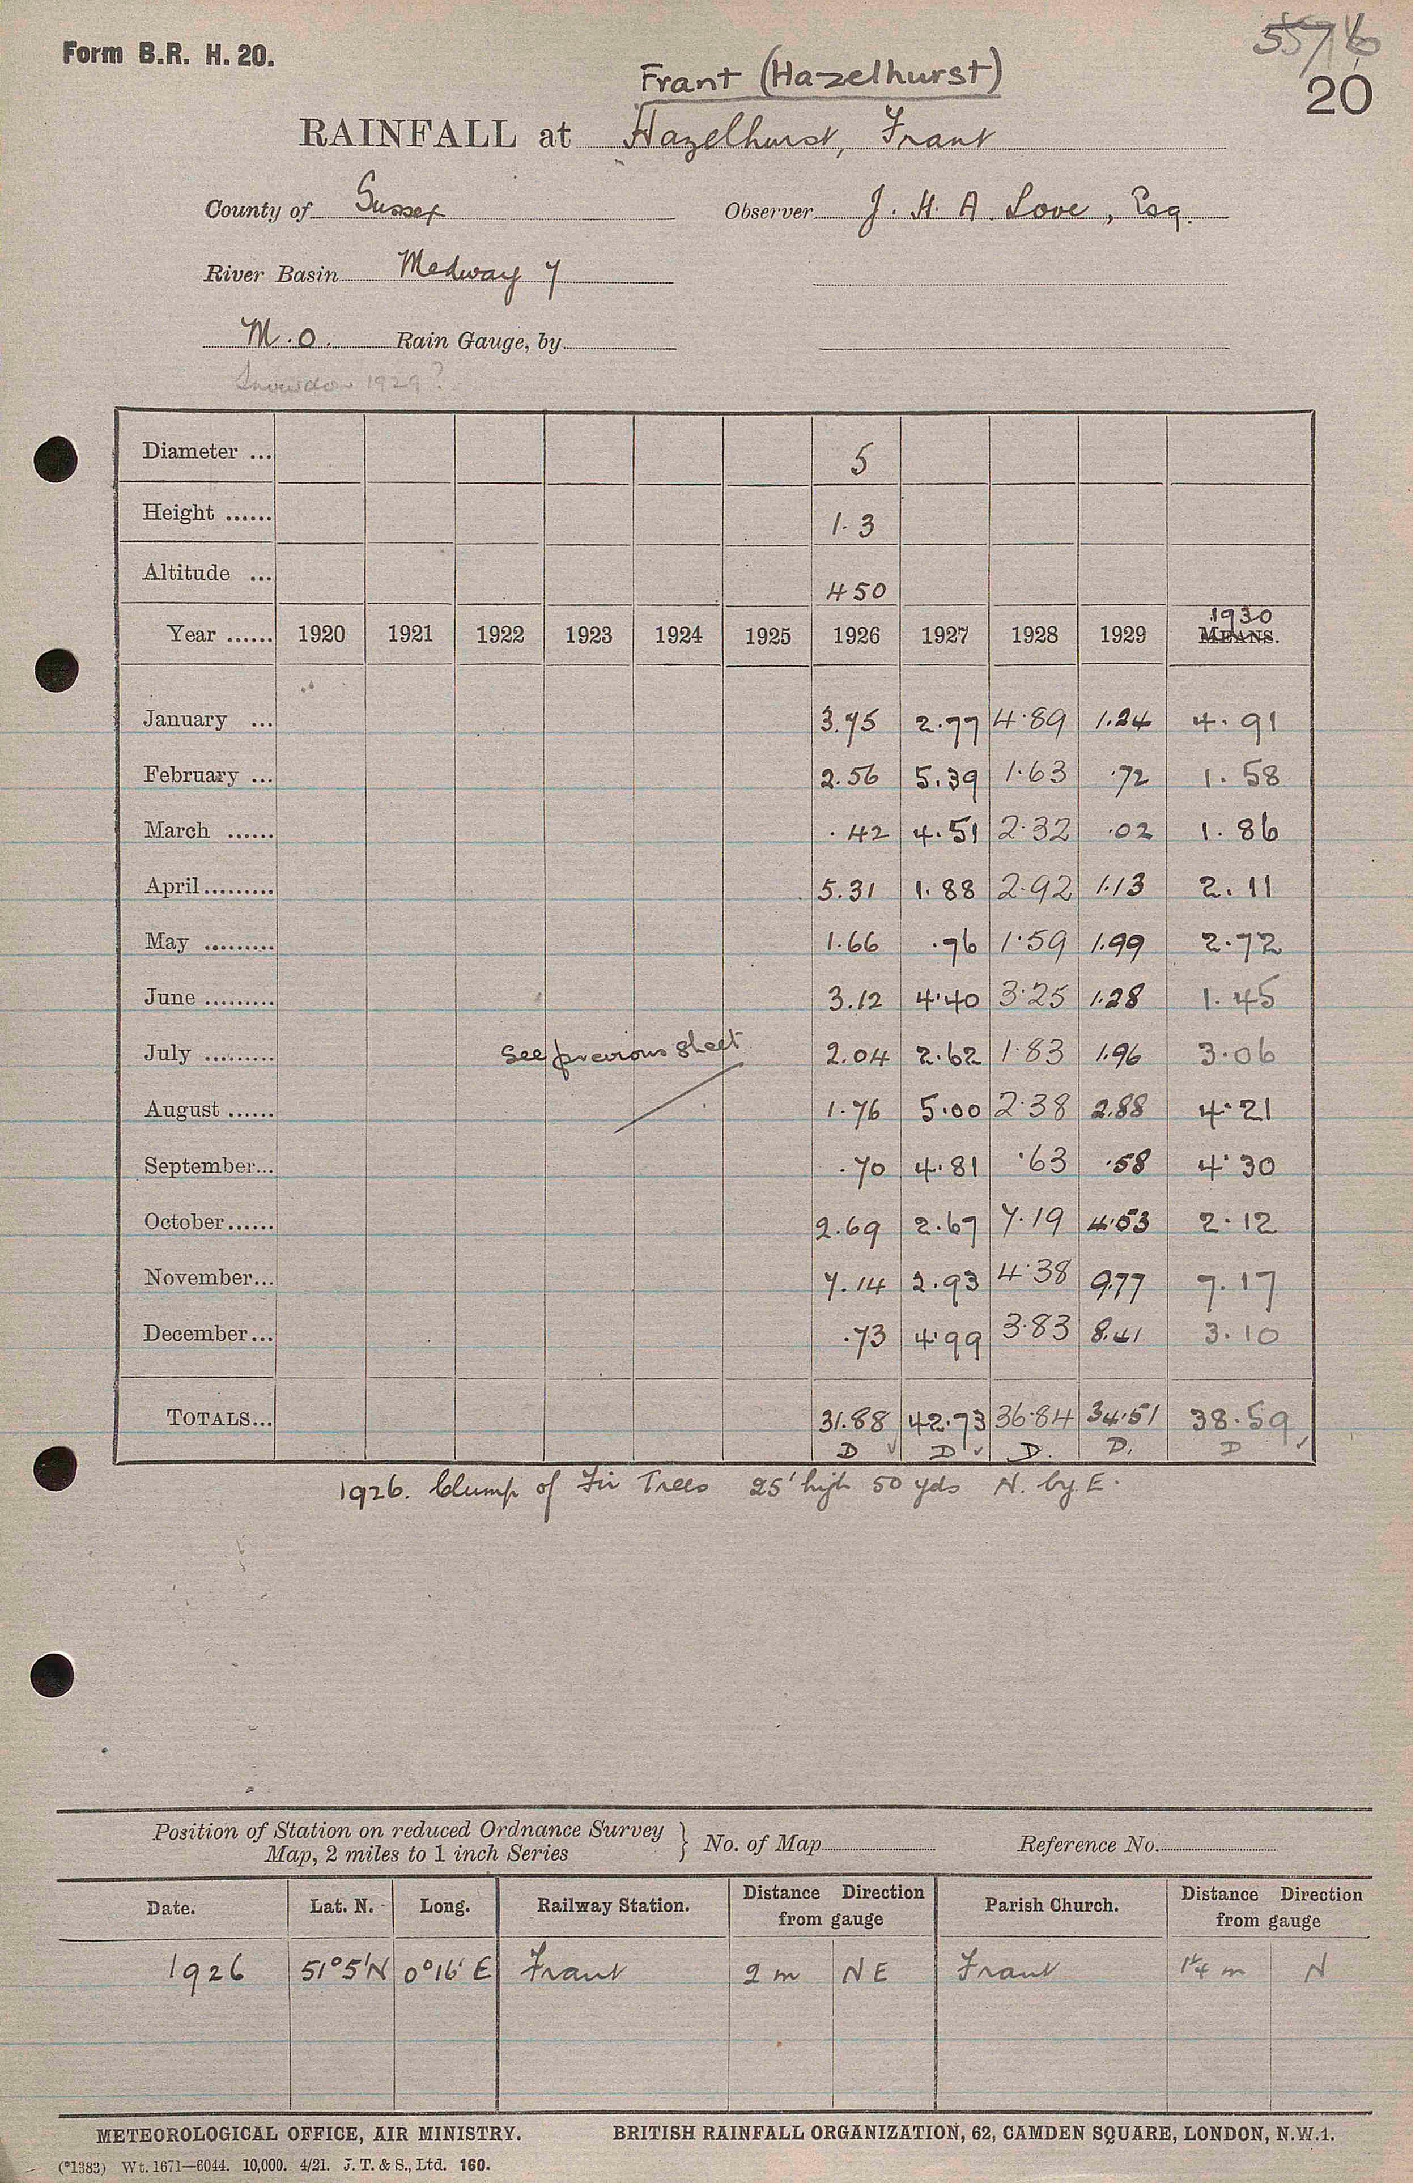 Form B.R. H. 20.
5576
20
Frant (Hazelhurst)
RAINFALL at Hazelhurst, Frant
County of Sussex Observer J. H. A. Love, Esq.
River Basin Medway 7
M.O. Rain Gauge, by
Snowdon 1929?
Diameter ... 5
Height ...... 1.3
Altitude ... 450
1930
Year ...... 1920 1921 1922 1923 1924 1925 1926 1927 1928 1929 MEANS.
January ... 3.75 2.77 4.89 1.24 4.91
February ... 2.56 5.39 1.63 .72 1.58
March ...... .42 4.51 2.32 .02 1.86
April ......... 5.31 1.88 2.92 1.13 2.11
May ......... 1.66 .76 1.59 1.99 2.72
June ......... 3.12 4.40 3.25 1.28 1.45
July ......... see previous sheet 2.04 2.62 1.83 1.96 3.06
August ...... 1.76 5.00 2.38 2.88 4.21
September... .70 4.81 .63 .58 4.30
October...... 2.69 2.67 7.19 4.53 2.12
November... 7.14 2.93 4.38 9.77 7.17
December... .73 4.99 3.83 8.41 3.10
TOTALS... 31.88 42.73 36.84 34.51 38.59
D D D. D. D
1926. Clump of Fir Trees 25' high 50 yds N. by E.
Position of Station on reduced Ordnance Survey
Map, 2 miles to 1 inch Series } No. of Map Reference No.
Date. Lat. N. Long. Railway Station. Distance Direction from gauge Parish Church. Distance Direction from gauge
1926 51°5'N 0°16' E Frant 2 m NE Frant 1¼ m N
METEOROLOGICAL OFFICE, AIR MINISTRY. BRITISH RAINFALL ORGANIZATION, 62, CAMDEN SQUARE, LONDON, N.W.1.
(*1383) Wt. 1671—6044. 10,000. 4/21. J. T. & S., Ltd. 160.